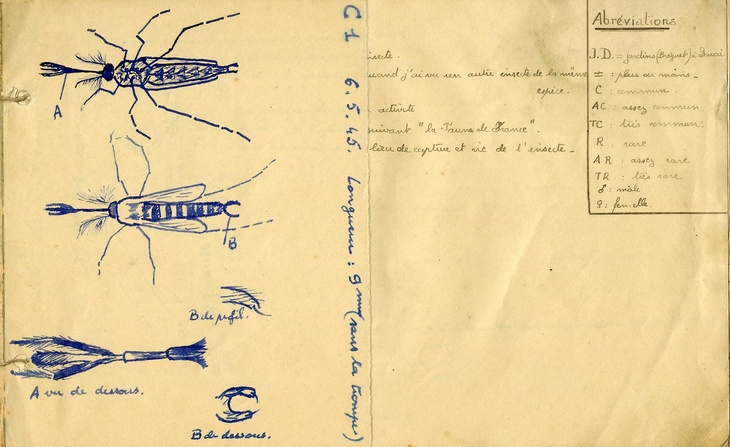 A
B
B de profil.
A vu de dessous.
B de dessous.
C 1 6.5.45. Longueur : 9 mm (sans la trompe)
insecte.
quand j'ai vu un autre insecte de la même
espèce.
activité
suivant "la Faune de France".
lieu de capture et vie de l'insecte.
Abréviations
J.D. = jardins (Briquet) à Douai
± : plus ou moins.
C : commun.
AC : assez commun
TC : très commun.
R : rare
AR : assez rare
TR : très rare
♂ : mâle
♀ : femelle.